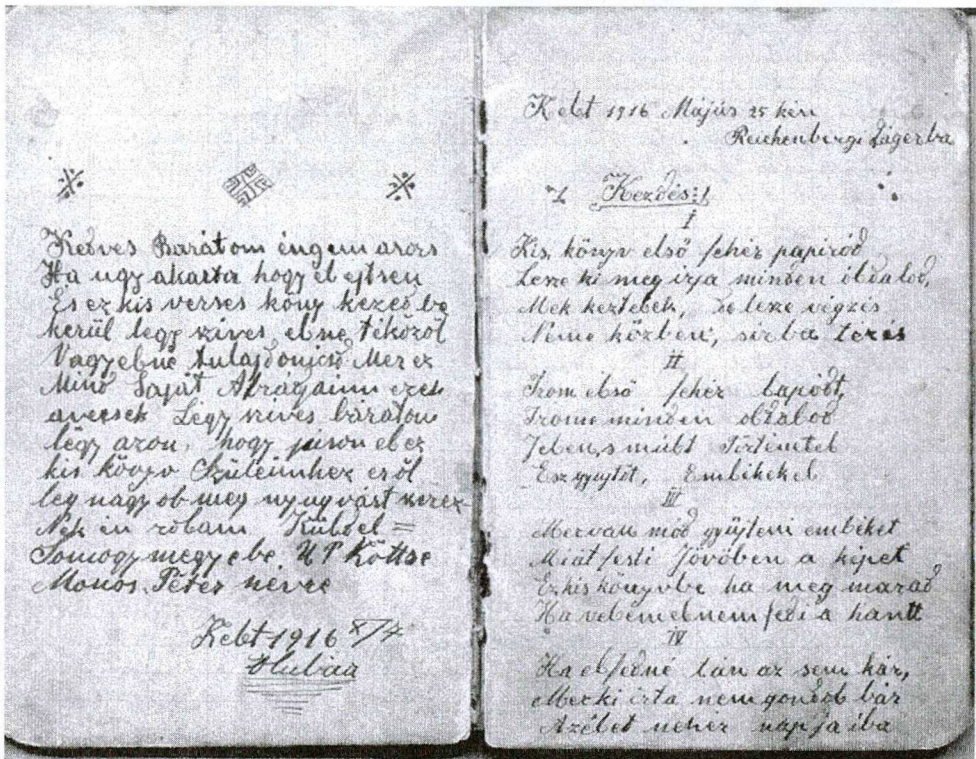 Kedves Barátom éngem arors
Ha ugy akarta hogy el ejtsen
És ez kis verses köny kezed be
kerül legy szives el ne tékózol
Vagy el ne tulajdonicsd Mer ez
Mind Saját
avecsek Légy szives bárátom
légy azon, hogy juson el ez
kis könyv Szüleimhez eről
leg nagyob meg nyugvást szerez
Nek én rólam Küldel =
Somogy megyebe, U P Köttse
Monos Péter névre
Kelt 1916 8/7
Kelt 1916 Május 25 kén
Reichenbergi Lágerba
Kezdés:
I
Kis, könyv első fehér papiród
Lesze ki meg irja minden óldalod,
Mek keztelek, de lesze végzés
Nem e közben, sirba tezés
II
Irom első fehér lapódt,
Irom e minden oldalod
Jelen, s múlt Történetek
Ész gyujtöt, Emlékekel
III
Mer van mód gyűjteni emléket
Miát festi Jövőben a képet
Ez kis könyvbe ha meg marad
Ha velem el nem fedi a hantt
IV
Ha el fedné tán az sem kár,
Mer ki irta nem gondol bár
Az élet nehez napja iba